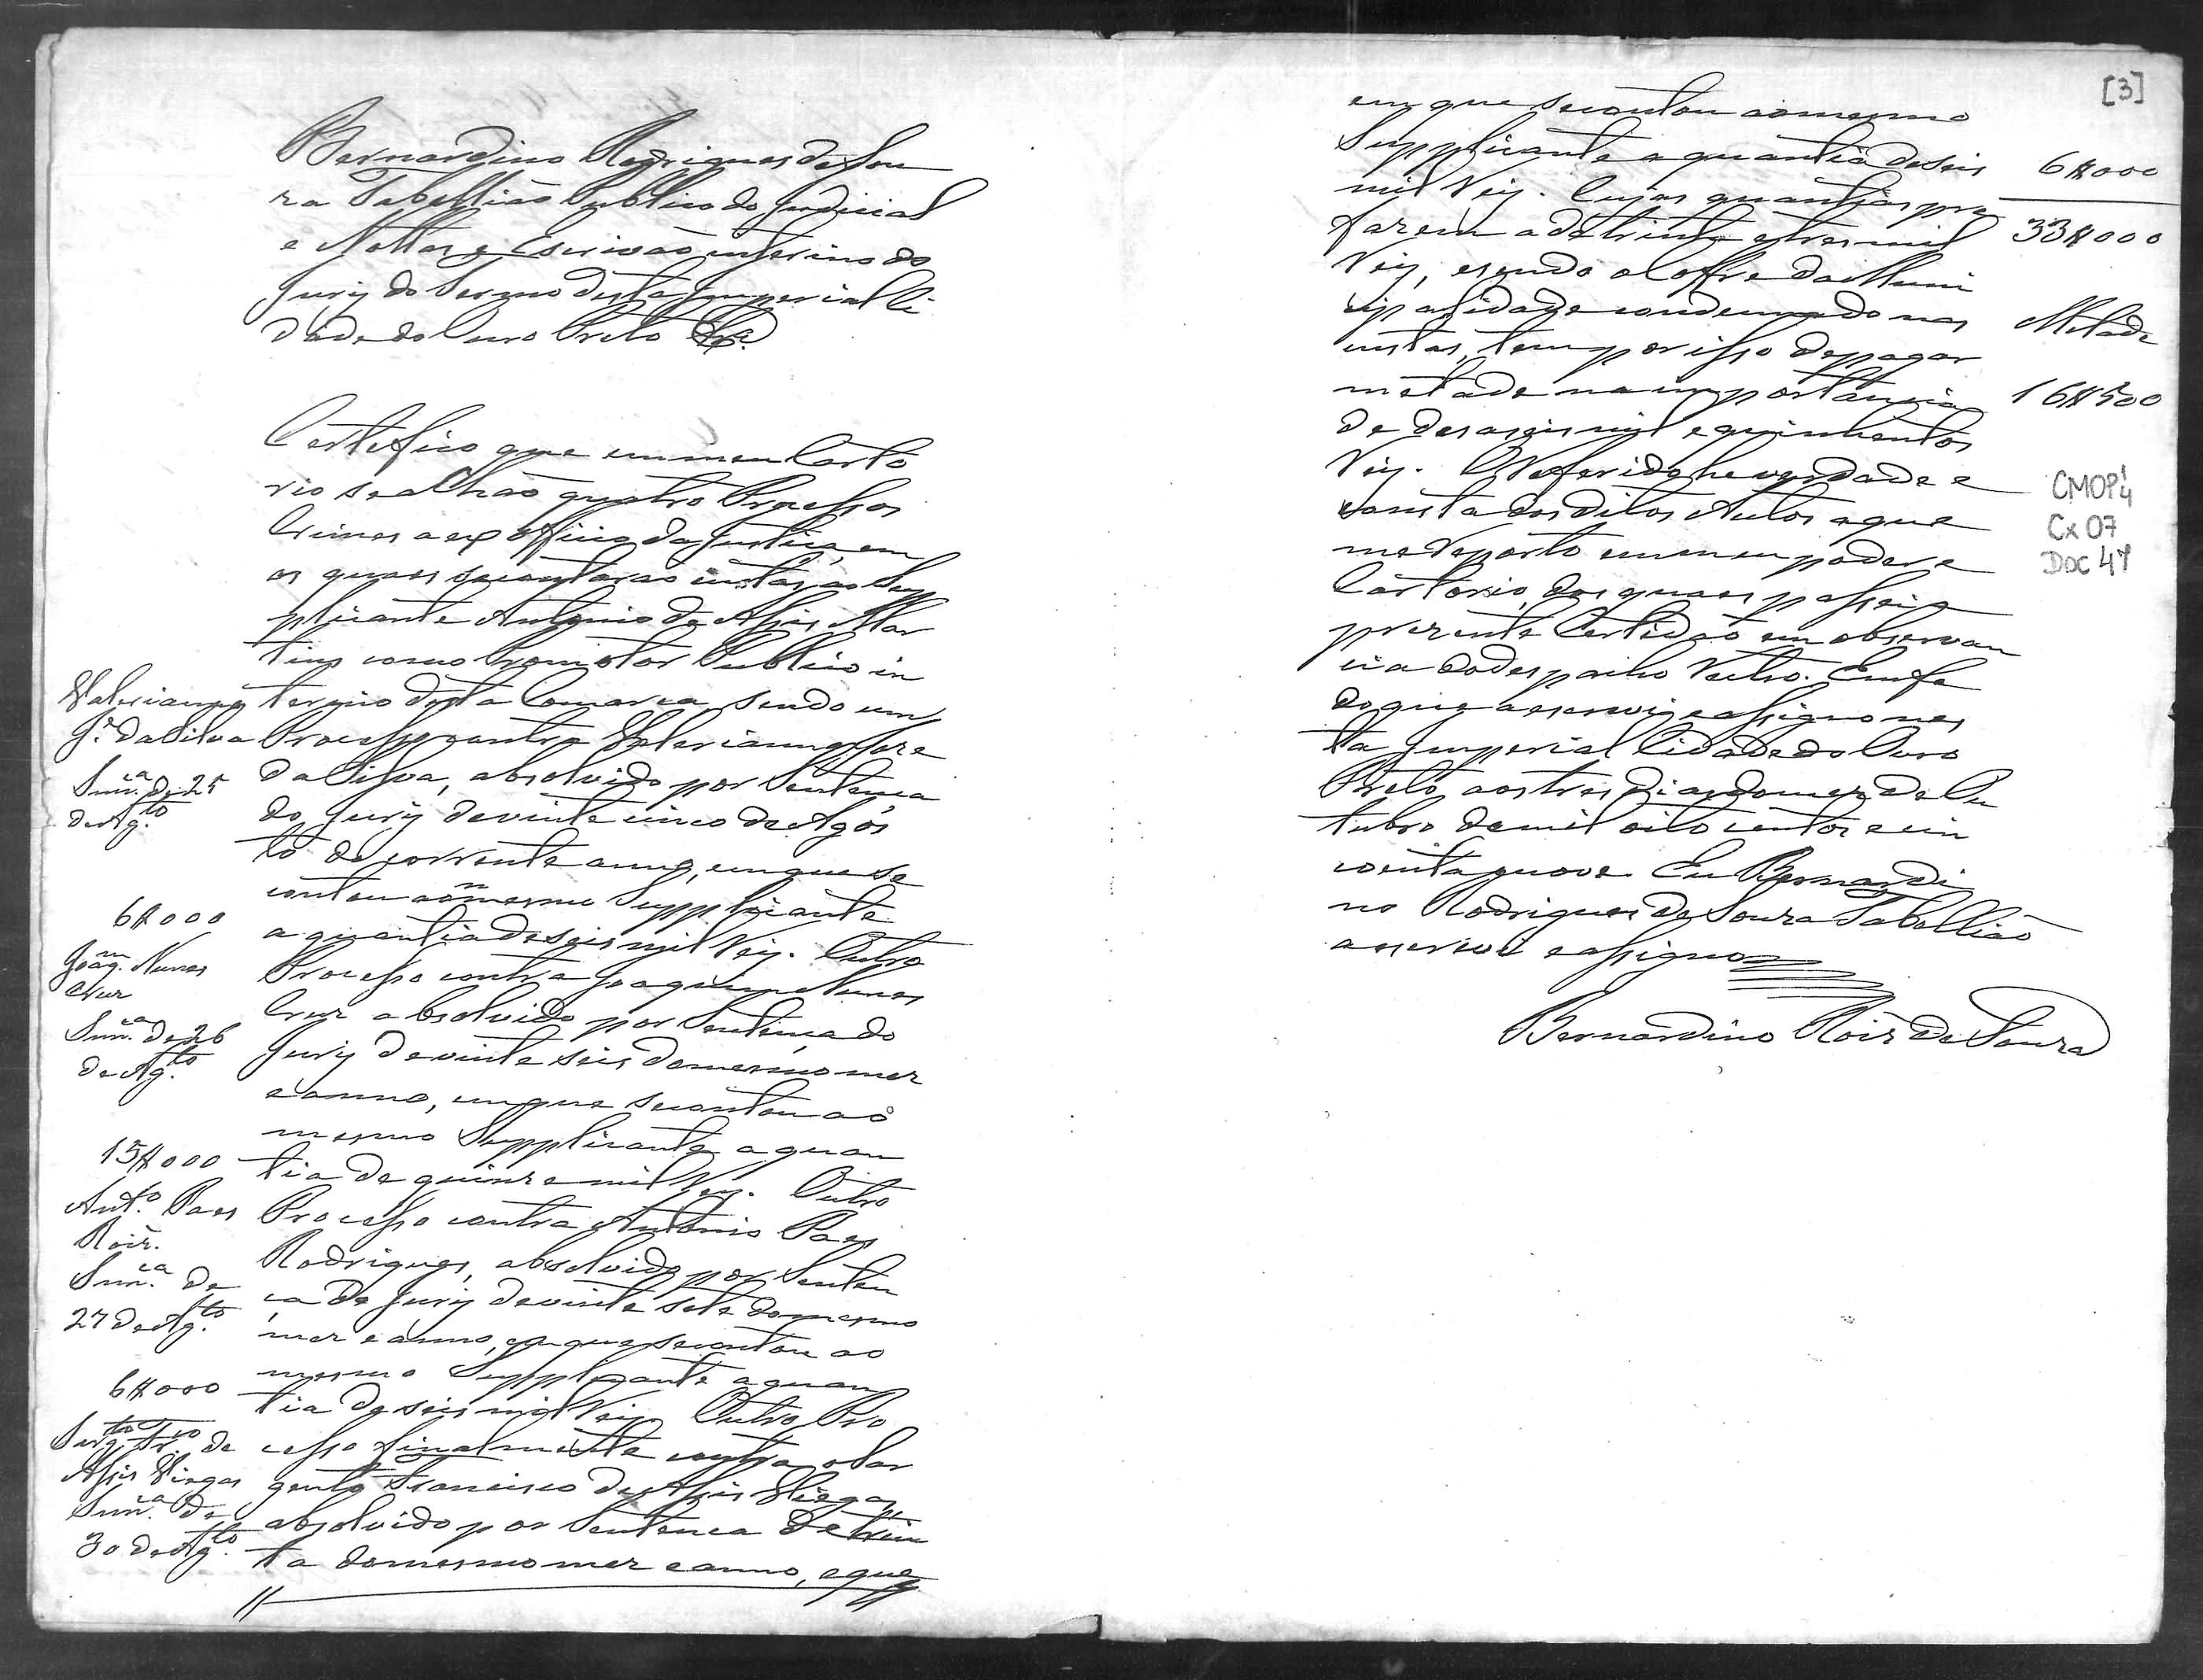 Bernardino Rodrigues de Sou
za Tabellião Publico do Judicial
e Nottas e Escrivão interino do
Jury do Termo desta Imperial Ci
dade do Ouro Preto &ª.
Certefico que em meu Carto
rio se achão quatro Processos
Crimes a ex officio da Justiça, em
os quaes se contarão custas ao Sup
plicante Antonio de Assis Mar
tins como Promotor Publico in
terino desta Comarca, sendo um
Processo contra Valerianno Jose
da Silva, absolvido por Sentença
do Jury de vinte cinco de Agos
to do corrente anno, em que se
contou ao mesmo Supplicante
a quantia de seis mil reis. Outro
Processo contra Joaquim Nunes
Cruz absolvido por Sentença do
Jury de vinte seis do mesmo mez
e anno, em que se contou ao
mesmo Supplicante a quan
tia de quinze mil reis. Outro
Processo contra Antonio Paes
Rodrigues, absolvido por Senten
ça do Jury de vinte sete do mesmo
mez e anno, em que se contou ao
mesmo Supplicante a quan
tia de seis mil reis. Outro Pro
cesso finalmente contra o Sar
gento Francisco de Assis Viegas,
absolvido por Sentença de trin
ta do mesmo mez e anno, e que
Valerianno
Je. da Silva
Snn.ca de 25
de Ag.to
6$000
Joaq.m Nunes
Cruz
Snn.ca de 26
de Ag.to
15$000
Ant.o Paes
Roiz.
Snn.ca de
27 de Ag.to
6$000
Sarg.to Fr.co de
Assis Viegas
Snn.ca de
30 de Ag.to
[3]
em que se contou ao mesmo
Supplicante a quantia de seis
mil reis. Cujas quantias pre
fazem a de trinta e tres mil
reis, e sendo o Coffre da Muni
cipalidade condemnado nas
custas, tem por isso de pagar
metade na importancia
de desaseis mil e quinhentos
reis. O referido he verdade e
consta dos ditos Autos a que
me reporto em meu poder e
Cartorio, dos quaes passei a
prezente Certidão em observan
cia do despacho retro. Em fe
do que a escrevi e assigno nes
ta Imperial Cidade do Ouro
Preto, aos tres dias do mez de Ou
tubro de mil oito centos e cin
coenta e nove. Eu Bernardi
no Rodrigues de Souza Tabellião
a escrevi e assigno
Bernardino Roiz de Souza
6$000
33$000
Metade
16$500
CMOP
Cx 07
DOC 47